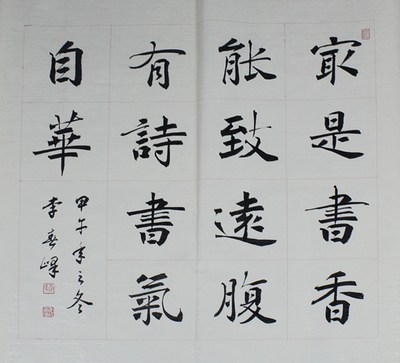 最是書香
能致遠腹
有詩書氣
自華
甲午年之冬
李春峰